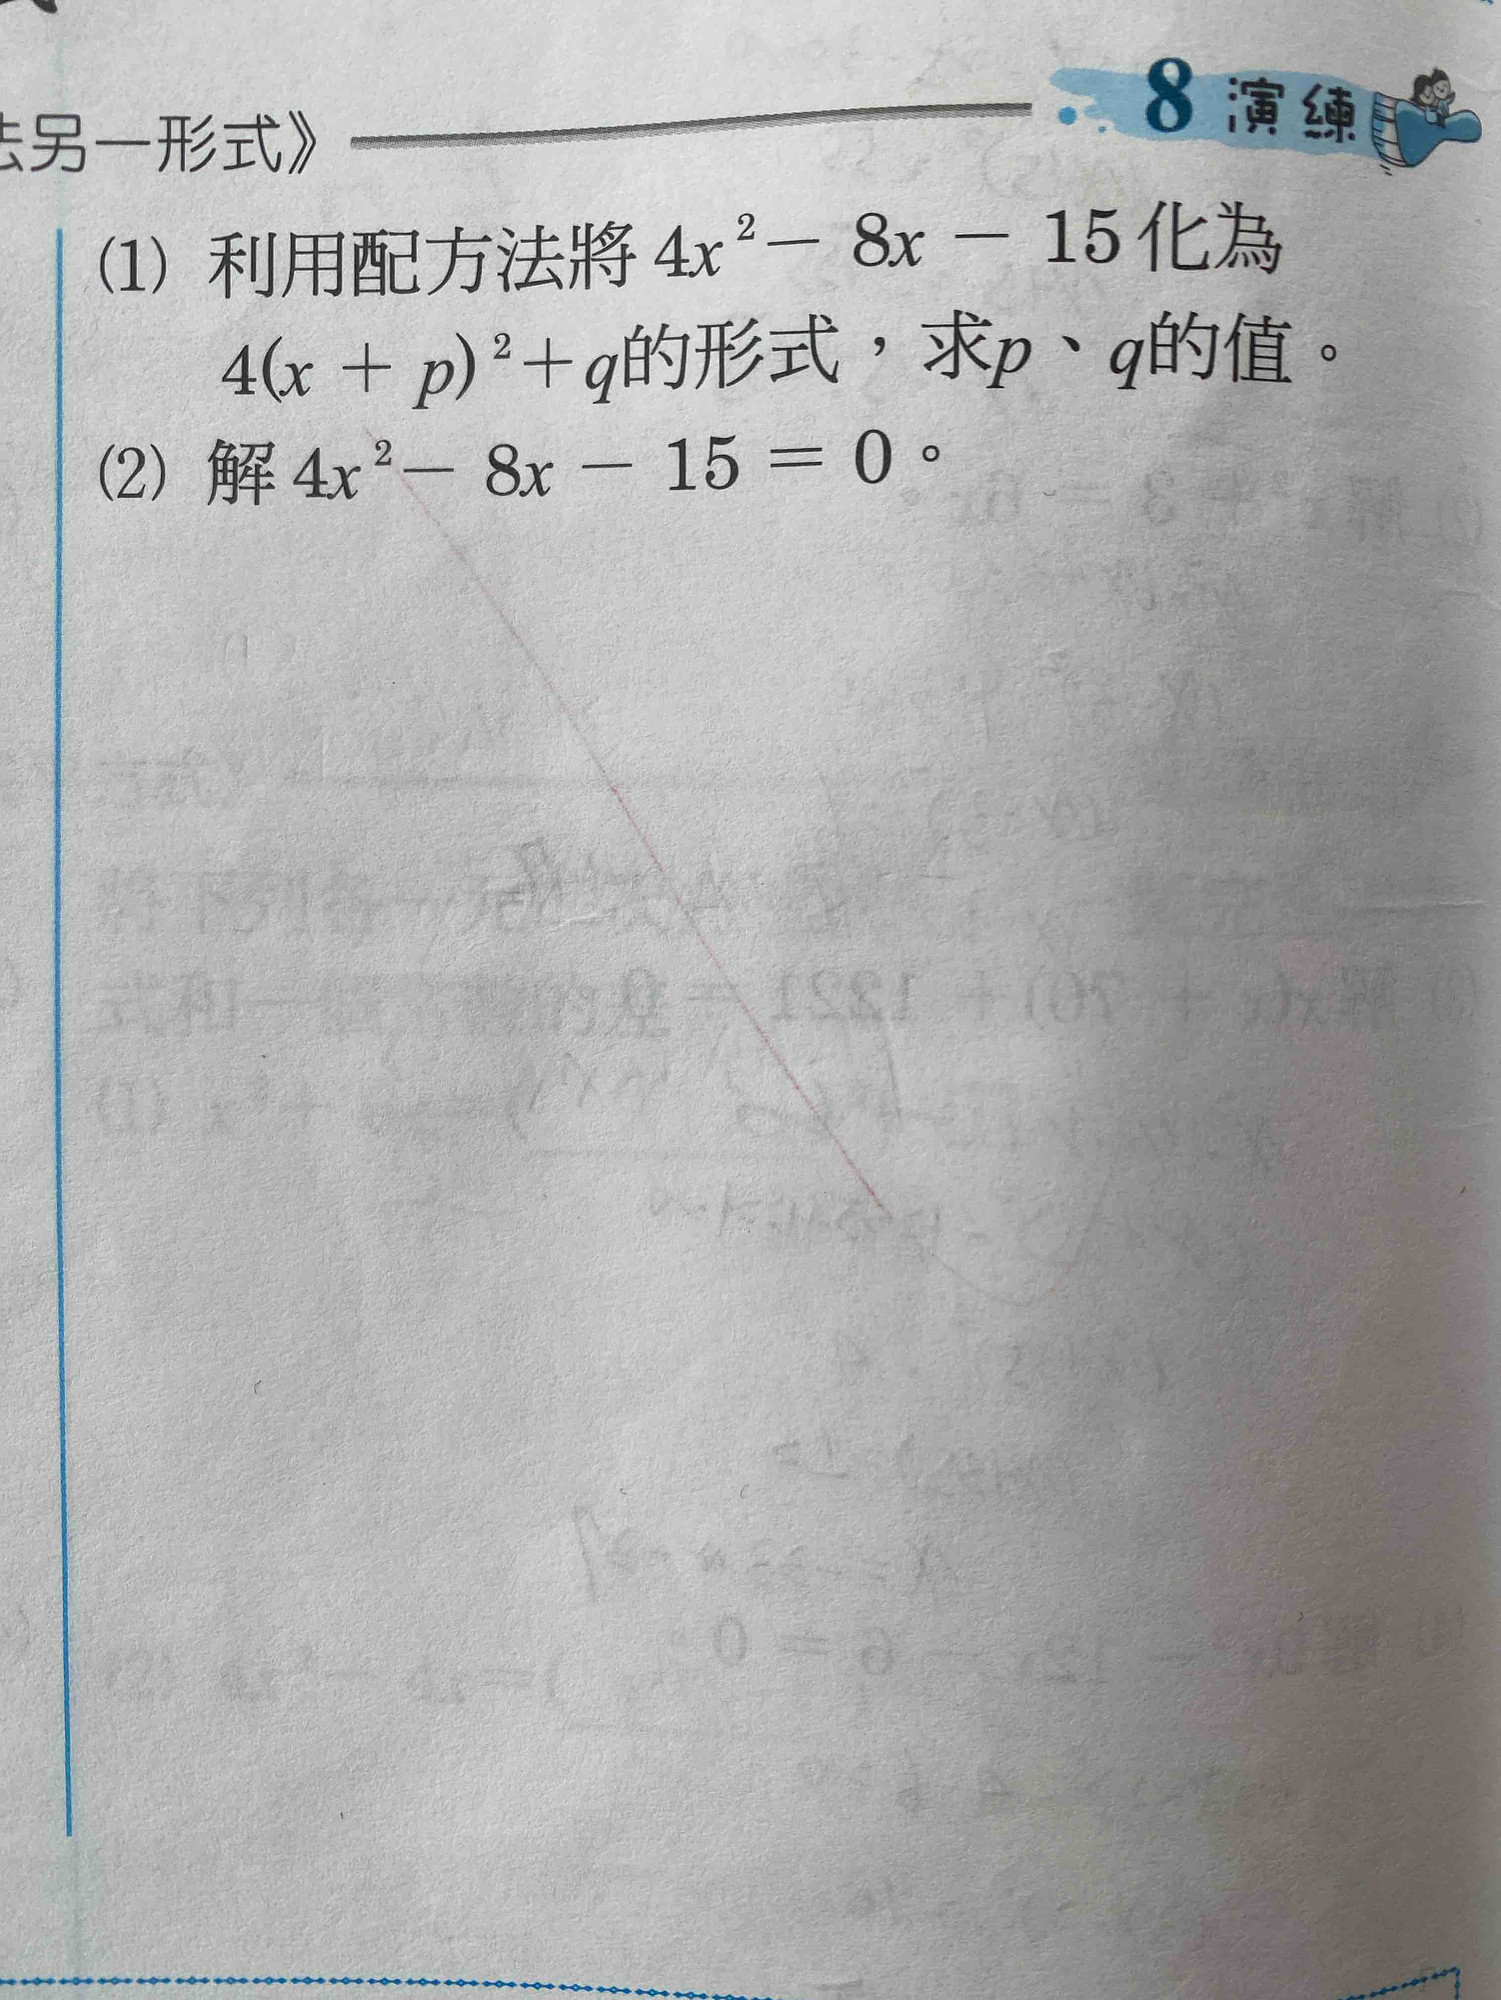 8 演練
法另一形式》
(1) 利用配方法將 4x² − 8x − 15 化為
4(x + p)² + q的形式，求p、q的值。
(2) 解 4x² − 8x − 15 = 0。